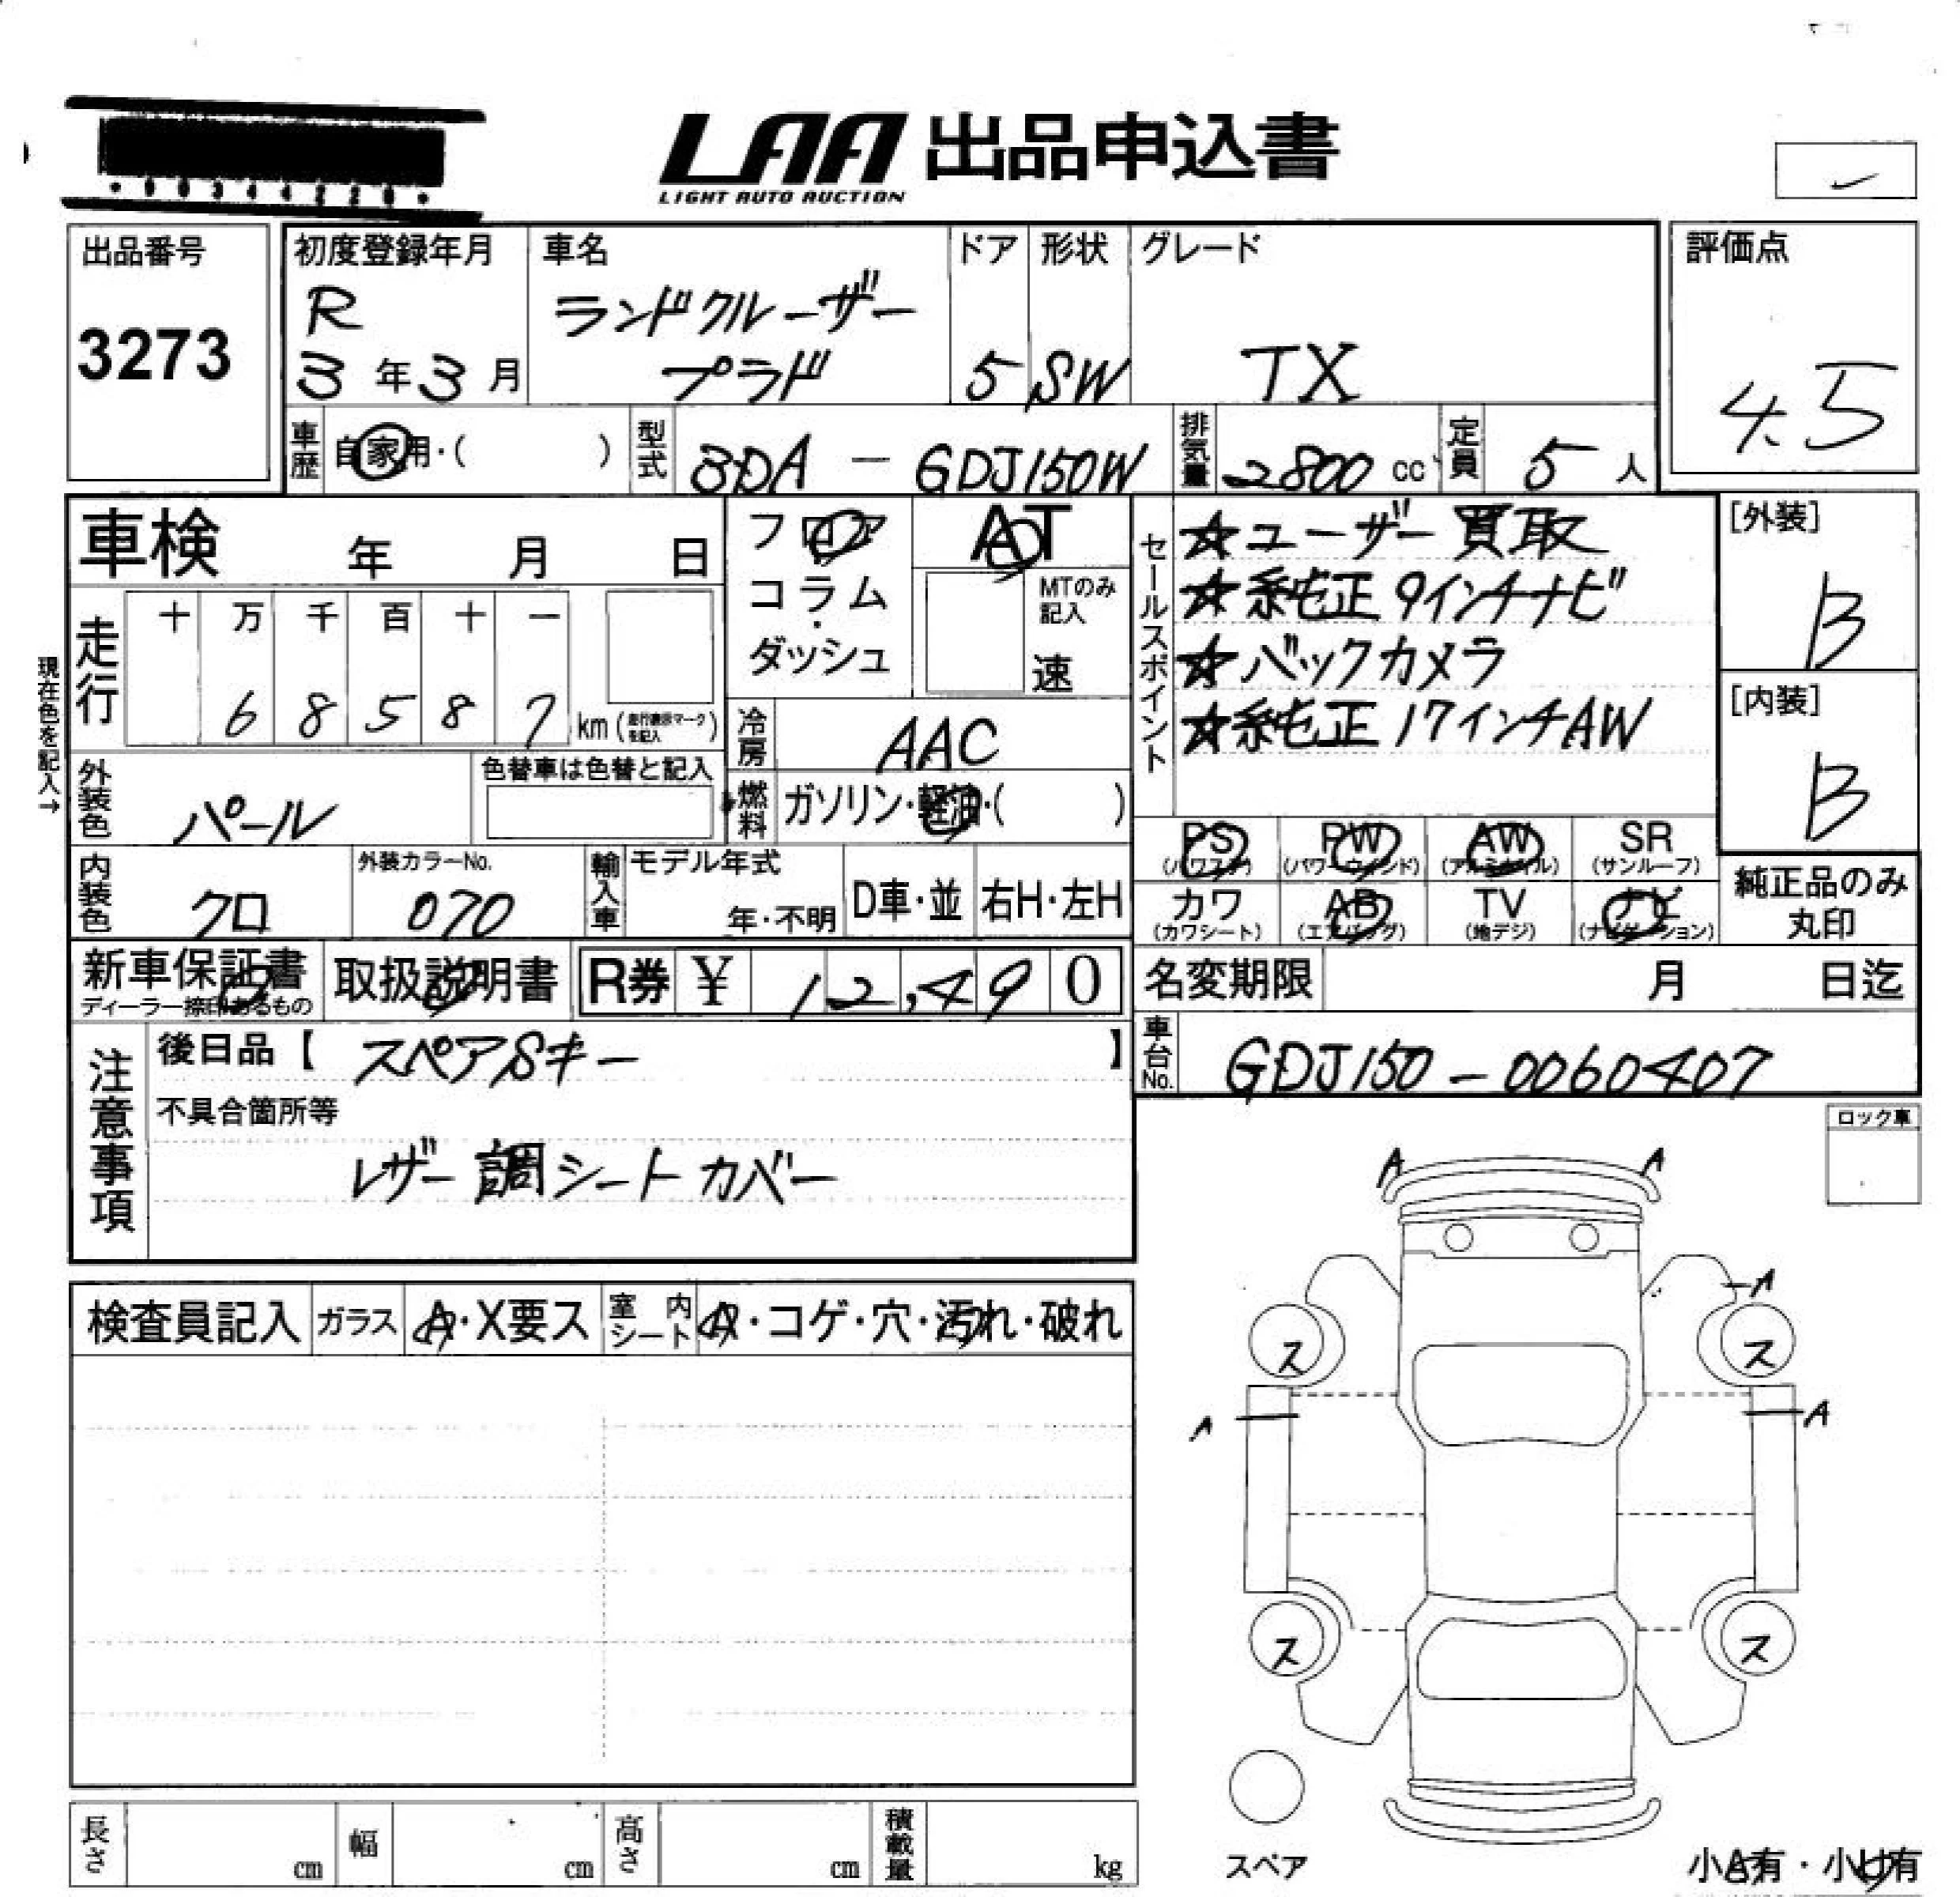 LAA 出品申込書
LIGHT AUTO AUCTION
出品番号
3273
初度登録年月
R
3年3月
車名
ランドクルーザー
プラド
ドア
5
形状
SW
グレード
TX
評価点
4.5
車歴 自家用・( )
型式 3DA - GDJ150W
排気量 2800 cc
定員 5人
車検 年 月 日
フロア
コラム・
ダッシュ
AT
MTのみ
記入
速
セールスポイント
☆ユーザー買取
☆純正9インチナビ
☆バックカメラ
☆純正17インチAW
[外装]
B
[内装]
B
現在色を記入→
走行
十 万 千 百 十 一
6 8 5 8 7 km
冷房 AAC
外装色 パール
色替車は色替と記入
燃料 ガソリン・軽油・( )
PS (パワステ)
PW (パワーウィンド)
AW (アルミホイル)
SR (サンルーフ)
カワ (カワシート)
AB (エアバッグ)
TV (地デジ)
ナビ (ナビゲーション)
純正品のみ
丸印
内装色 クロ
外装カラーNo.
070
輸入車
モデル年式
年・不明
D車・並
右H・左H
新車保証書
ディーラー捺印あるもの
取扱説明書
R券 ¥ 12,490
名変期限 月 日迄
車台No. GDJ150-0060407
注意事項
後日品【 スペアSキー 】
不具合箇所等
レザー調シートカバー
ロック車
A A
A
ス ス
A A
ス ス
検査員記入 ガラス A・X要ス 室内シート A・コゲ・穴・汚れ・破れ
長さ cm 幅 cm 高さ cm 積載量 kg
スペア
小A有・小U有